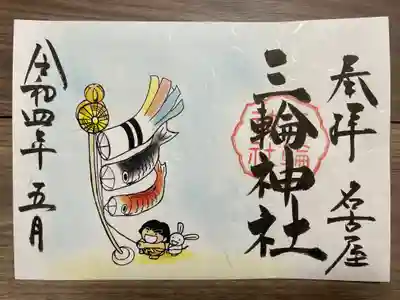 奉拝 名古屋
三輪神社
令和四年 五月